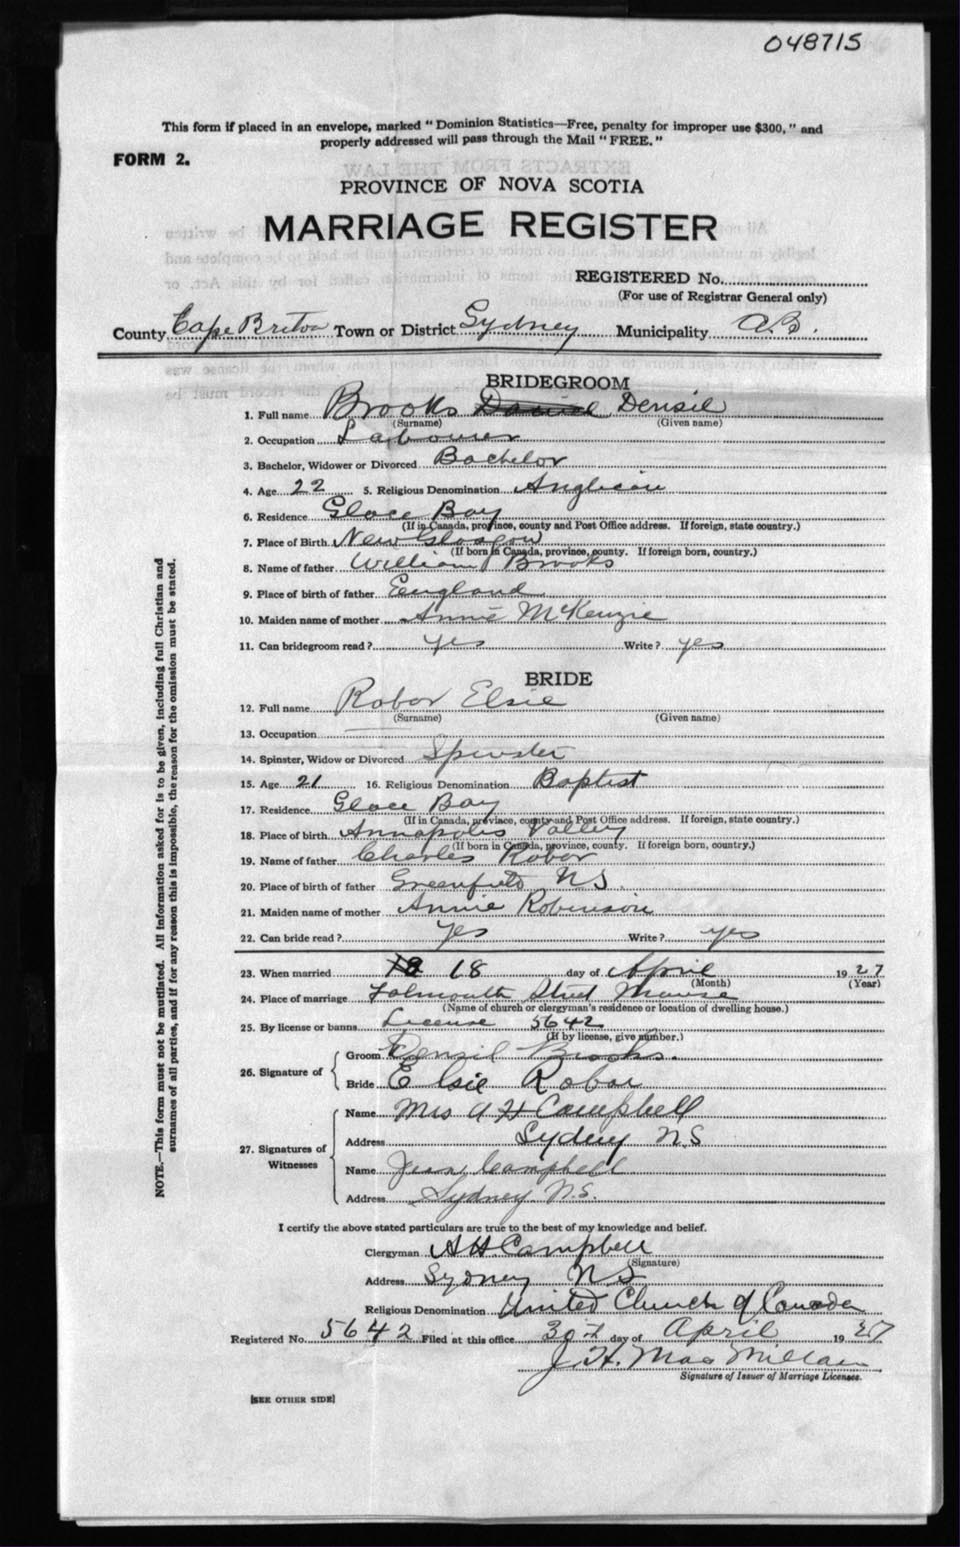 048715
This form if placed in an envelope, marked "Dominion Statistics—Free, penalty for improper use $300," and
properly addressed will pass through the Mail "FREE."
FORM 2.
PROVINCE OF NOVA SCOTIA
MARRIAGE REGISTER
REGISTERED No.
(For use of Registrar General only)
County Cape Breton Town or District Sydney Municipality C.B.
BRIDEGROOM
1. Full name Brooks Daniel Densil
(Surname) (Given name)
2. Occupation Labourer
3. Bachelor, Widower or Divorced Bachelor
4. Age 22 5. Religious Denomination Anglican
6. Residence Glace Bay
(If in Canada, province, county and Post Office address. If foreign, state country.)
7. Place of Birth New Glasgow
(If born in Canada, province, county. If foreign born, country.)
8. Name of father William Brooks
9. Place of birth of father England
10. Maiden name of mother Annie McKenzie
11. Can bridegroom read? yes Write? yes
BRIDE
12. Full name Robar Elsie
(Surname) (Given name)
13. Occupation
14. Spinster, Widow or Divorced Spinster
15. Age 21 16. Religious Denomination Baptist
17. Residence Glace Bay
(If in Canada, province, county and Post Office address. If foreign, state country.)
18. Place of birth Annapolis Valley
(If born in Canada, province, county. If foreign born, country.)
19. Name of father Charles Robar
20. Place of birth of father Greenfield NS.
21. Maiden name of mother Annie Robinson
22. Can bride read? yes Write? yes
23. When married 18 day of April 1927
(Month) (Year)
24. Place of marriage Falmouth Street Manse
(Name of church or clergyman's residence or location of dwelling house.)
25. By license or banns License 5642
(If by license, give number.)
26. Signature of
Groom Denzil Brooks.
Bride Elsie Robar
27. Signatures of Witnesses
Name Mrs A H Campbell
Address Sydney N.S
Name Jean Campbell
Address Sydney N.S.
I certify the above stated particulars are true to the best of my knowledge and belief.
Clergyman A H Campbell
(Signature)
Address Sydney NS
Religious Denomination United Church of Canada
Registered No. 5642 Filed at this office 30th day of April 1927
J. H. MacMillan
Signature of Issuer of Marriage Licenses.
[SEE OTHER SIDE]
NOTE.—This form must not be mutilated. All information asked for is to be given, including full Christian and
surnames of all parties, and if for any reason this is impossible, the reason for the omission must be stated.